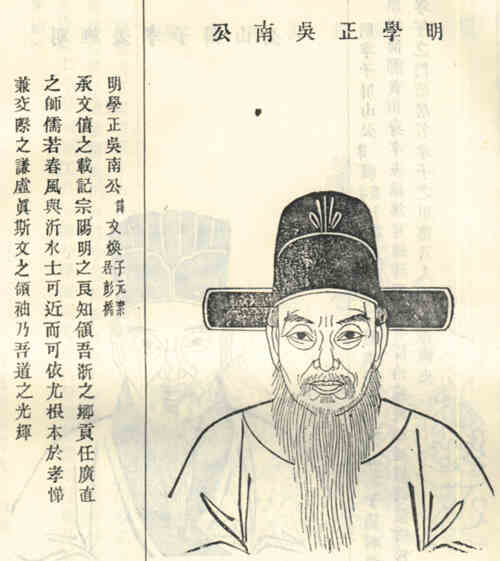 明學正吳南公
明學正吳南公諱文煥子元素
承文僖之載記宗陽明之良知領吾浙之鄉貢任廣直
之師儒若春風與沂水士可近而可依尤根本於孝悌
兼交際之謙虛眞斯文之領袖乃吾道之光輝